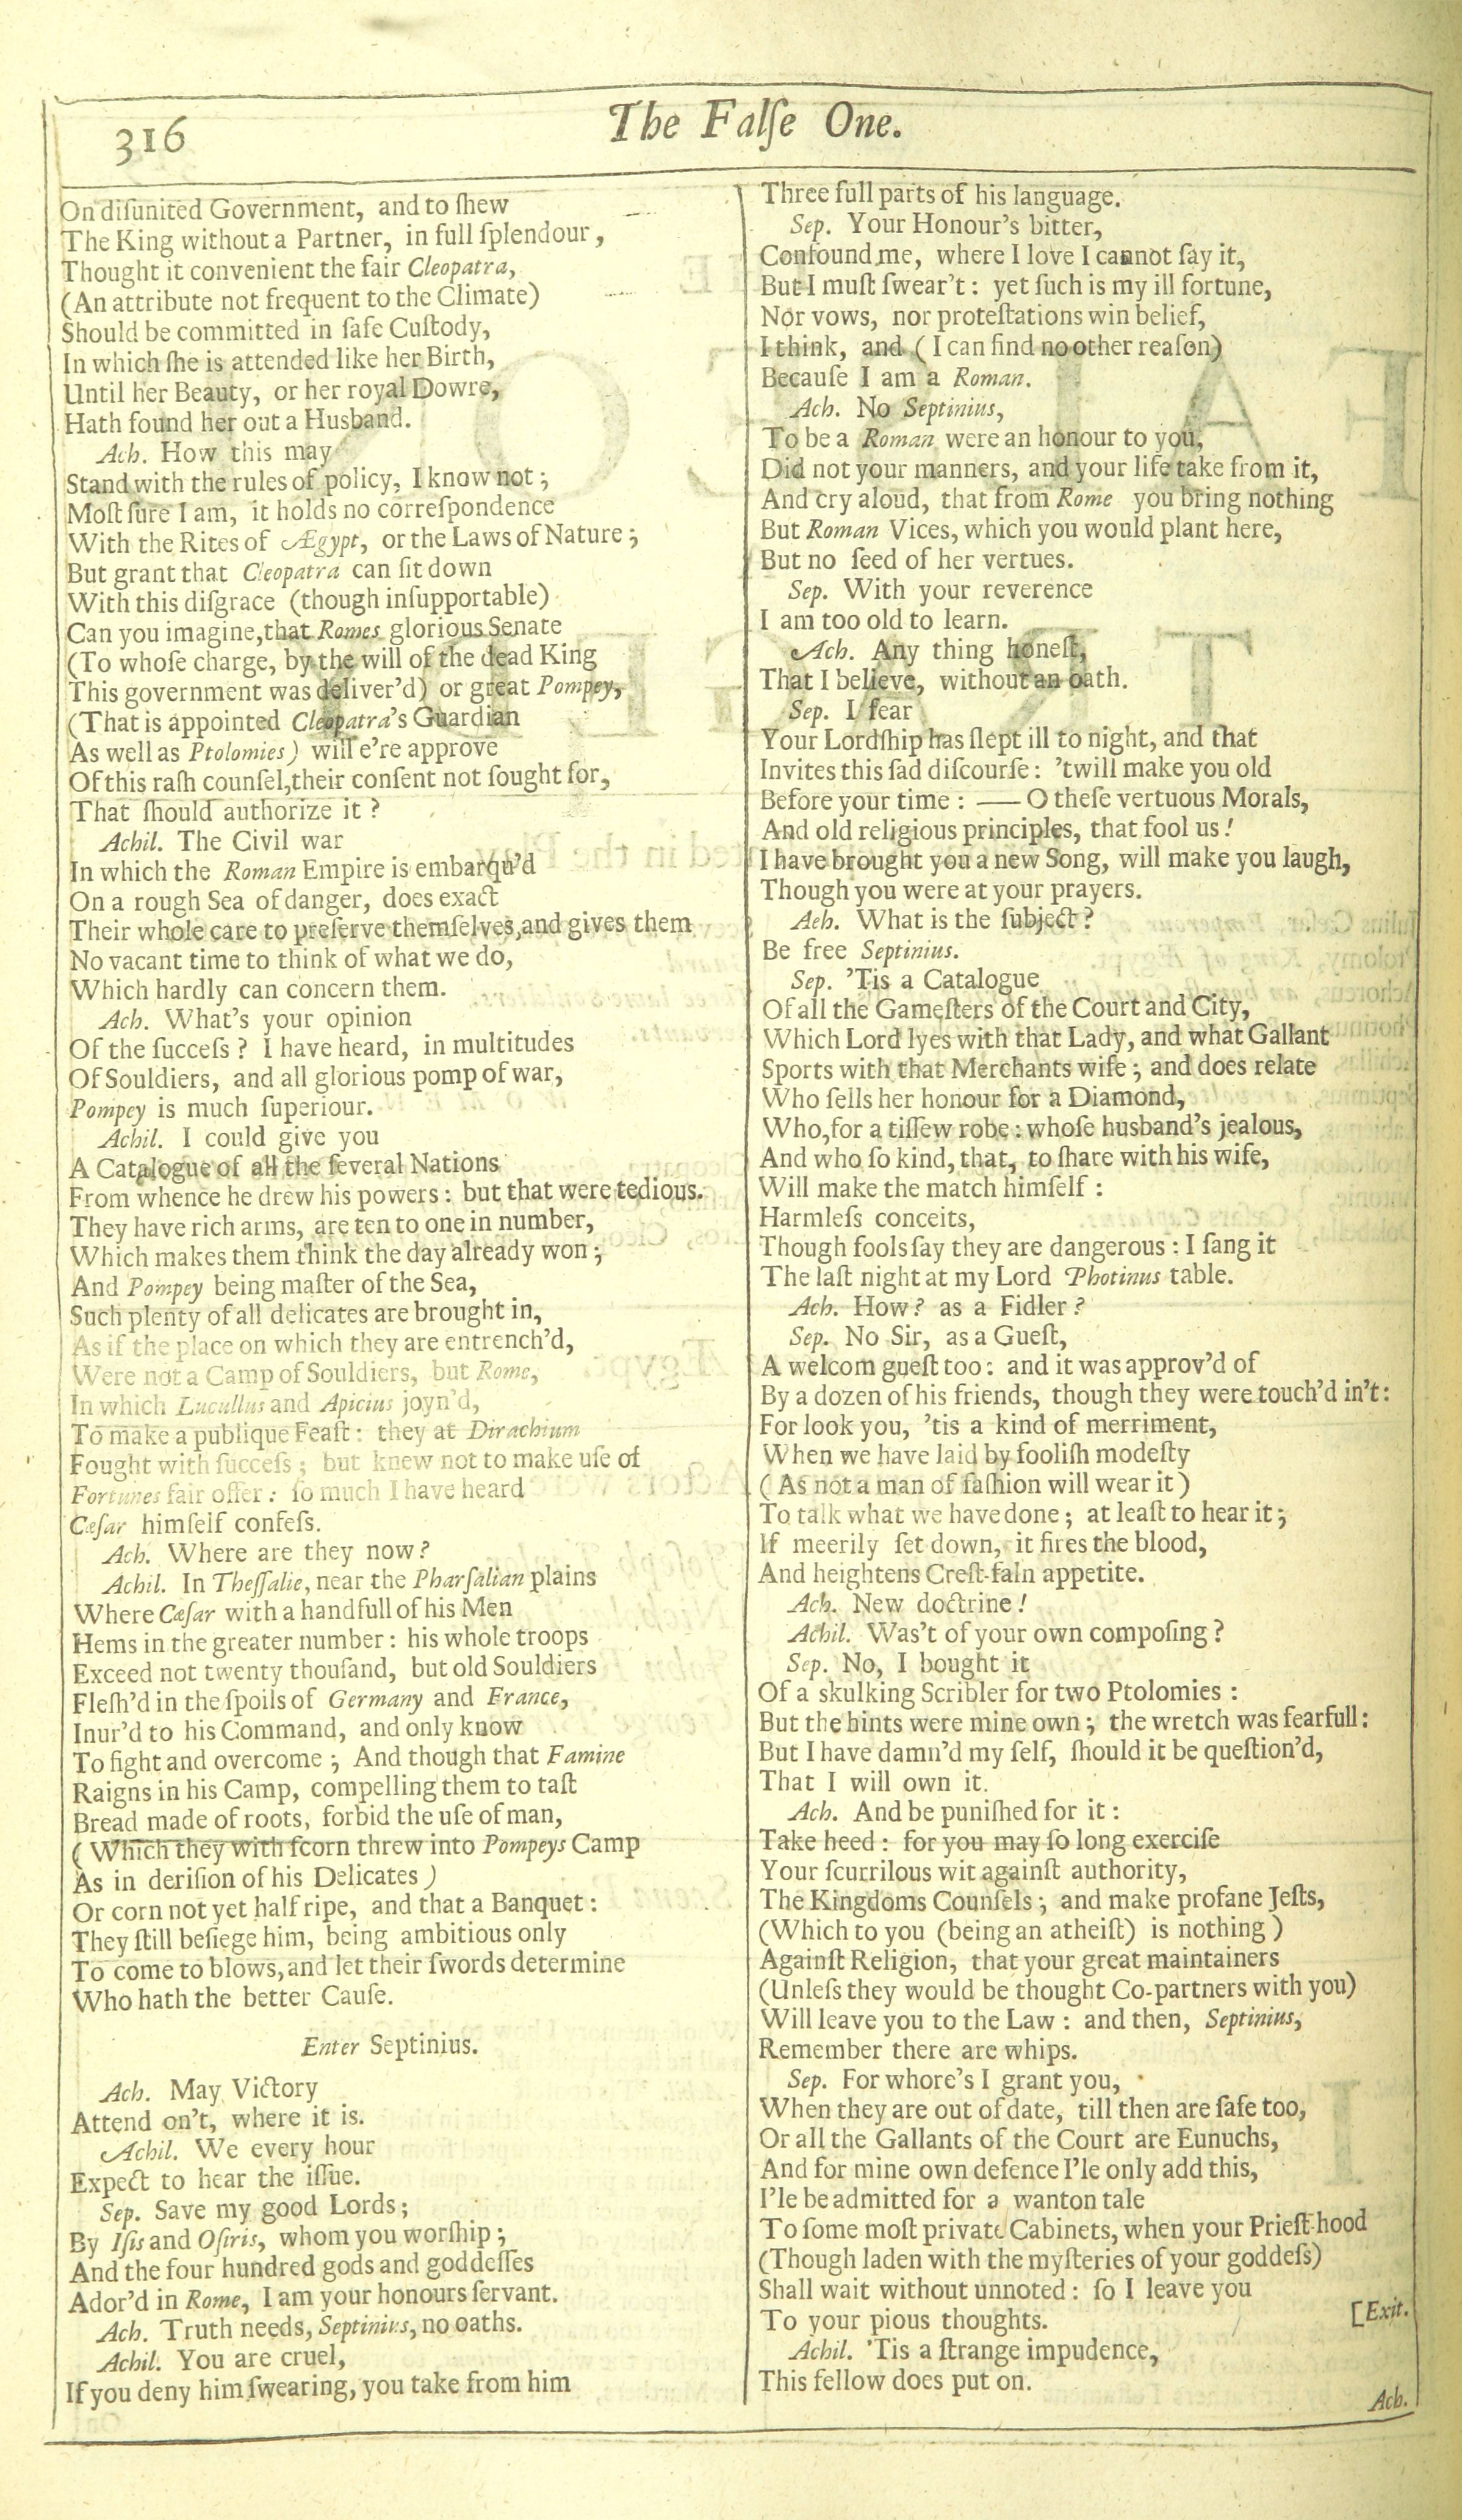 316
The Falſe One.
On diſunited Government, and to ſhew
The King without a Partner, in full ſplendour,
Thought it convenient the fair Cleopatra,
(An attribute not frequent to the Climate)
Should be committed in ſafe Cuſtody,
In which ſhe is attended like her Birth,
Until her Beauty, or her royal Dowre,
Hath found her out a Husband.
Ach. How this may
Stand with the rules of policy, I know not;
Moſt ſure I am, it holds no correſpondence
With the Rites of Ægypt, or the Laws of Nature;
But grant that Cleopatra can ſit down
With this diſgrace (though inſupportable)
Can you imagine, that Romes glorious Senate
(To whoſe charge, by the will of the dead King
This government was deliver'd) or great Pompey,
(That is appointed Cleopatra's Guardian
As well as Ptolomies) will e're approve
Of this raſh counſel, their conſent not ſought for,
That ſhould authorize it?
Achil. The Civil war
In which the Roman Empire is embarqu'd
On a rough Sea of danger, does exact
Their whole care to preſerve themſelves, and gives them
No vacant time to think of what we do,
Which hardly can concern them.
Ach. What's your opinion
Of the ſucceſs? I have heard, in multitudes
Of Souldiers, and all glorious pomp of war,
Pompey is much ſuperiour.
Achil. I could give you
A Catalogue of all the ſeveral Nations
From whence he drew his powers: but that were tedious.
They have rich arms, are ten to one in number,
Which makes them think the day already won;
And Pompey being maſter of the Sea,
Such plenty of all delicates are brought in,
As if the place on which they are entrench'd,
Were not a Camp of Souldiers, but Rome,
In which Lucullus and Apicius joyn'd,
To make a publique Feaſt: they at Dirachium
Fought with ſucceſs; but knew not to make uſe of
Fortunes fair offer: ſo much I have heard
Cæſar himſelf confeſs.
Ach. Where are they now?
Achil. In Theſſalie, near the Pharſalian plains
Where Cæſar with a handfull of his Men
Hems in the greater number: his whole troops
Exceed not twenty thouſand, but old Souldiers
Fleſh'd in the ſpoils of Germany and France,
Inur'd to his Command, and only know
To fight and overcome; And though that Famine
Raigns in his Camp, compelling them to taſt
Bread made of roots, forbid the uſe of man,
(Which they with ſcorn threw into Pompeys Camp
As in deriſion of his Delicates)
Or corn not yet half ripe, and that a Banquet:
They ſtill beſiege him, being ambitious only
To come to blows, and let their ſwords determine
Who hath the better Cauſe.
Enter Septinius.
Ach. May Victory
Attend on't, where it is.
Achil. We every hour
Expect to hear the iſſue.
Sep. Save my good Lords;
By Iſis and Oſiris, whom you worſhip;
And the four hundred gods and goddeſſes
Ador'd in Rome, I am your honours ſervant.
Ach. Truth needs, Septinius, no oaths.
Achil. You are cruel,
If you deny him ſwearing, you take from him
Three full parts of his language.
Sep. Your Honour's bitter,
Confound me, where I love I cannot ſay it,
But I muſt ſwear't: yet ſuch is my ill fortune,
Nor vows, nor proteſtations win belief,
I think, and (I can find no other reaſon)
Becauſe I am a Roman.
Ach. No Septinius,
To be a Roman were an honour to you,
Did not your manners, and your life take from it,
And cry aloud, that from Rome you bring nothing
But Roman Vices, which you would plant here,
But no ſeed of her vertues.
Sep. With your reverence
I am too old to learn.
Ach. Any thing honeſt,
That I believe, without an oath.
Sep. I fear
Your Lordſhip has ſlept ill to night, and that
Invites this ſad diſcourſe: 'twill make you old
Before your time: — O theſe vertuous Morals,
And old religious principles, that fool us!
I have brought you a new Song, will make you laugh,
Though you were at your prayers.
Ach. What is the ſubject?
Be free Septinius.
Sep. 'Tis a Catalogue
Of all the Gameſters of the Court and City,
Which Lord lyes with that Lady, and what Gallant
Sports with that Merchants wife; and does relate
Who ſells her honour for a Diamond,
Who, for a tiſſew robe: whoſe husband's jealous,
And who ſo kind, that, to ſhare with his wife,
Will make the match himſelf:
Harmleſs conceits,
Though fools ſay they are dangerous: I ſang it
The laſt night at my Lord Photinus table.
Ach. How? as a Fidler?
Sep. No Sir, as a Gueſt,
A welcom gueſt too: and it was approv'd of
By a dozen of his friends, though they were touch'd in't:
For look you, 'tis a kind of merriment,
When we have laid by fooliſh modeſty
(As not a man of faſhion will wear it)
To talk what we have done; at leaſt to hear it;
If meerily ſet down, it fires the blood,
And heightens Creſt-faln appetite.
Ach. New doctrine!
Achil. Was't of your own compoſing?
Sep. No, I bought it
Of a skulking Scribler for two Ptolomies:
But the hints were mine own; the wretch was fearfull:
But I have damn'd my ſelf, ſhould it be queſtion'd,
That I will own it.
Ach. And be puniſhed for it:
Take heed: for you may ſo long exerciſe
Your ſcurrilous wit againſt authority,
The Kingdoms Counſels; and make profane Jeſts,
(Which to you (being an atheiſt) is nothing)
Againſt Religion, that your great maintainers
(Unleſs they would be thought Co-partners with you)
Will leave you to the Law: and then, Septinius,
Remember there are whips.
Sep. For whore's I grant you,
When they are out of date, till then are ſafe too,
Or all the Gallants of the Court are Eunuchs,
And for mine own defence I'le only add this,
I'le be admitted for a wanton tale
To ſome moſt private Cabinets, when your Prieſt-hood
(Though laden with the myſteries of your goddeſs)
Shall wait without unnoted: ſo I leave you
To your pious thoughts.
[Exit.
Achil. 'Tis a ſtrange impudence,
This fellow does put on.
Ach.